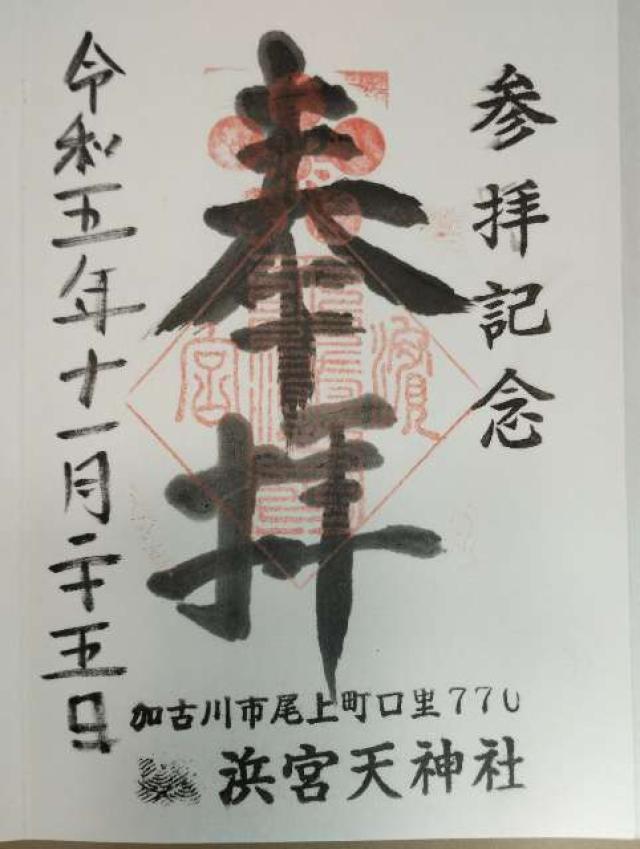 参拝記念
奉拝
濱宮
令和五年十一月二十五日
加古川市尾上町口里770
浜宮天神社